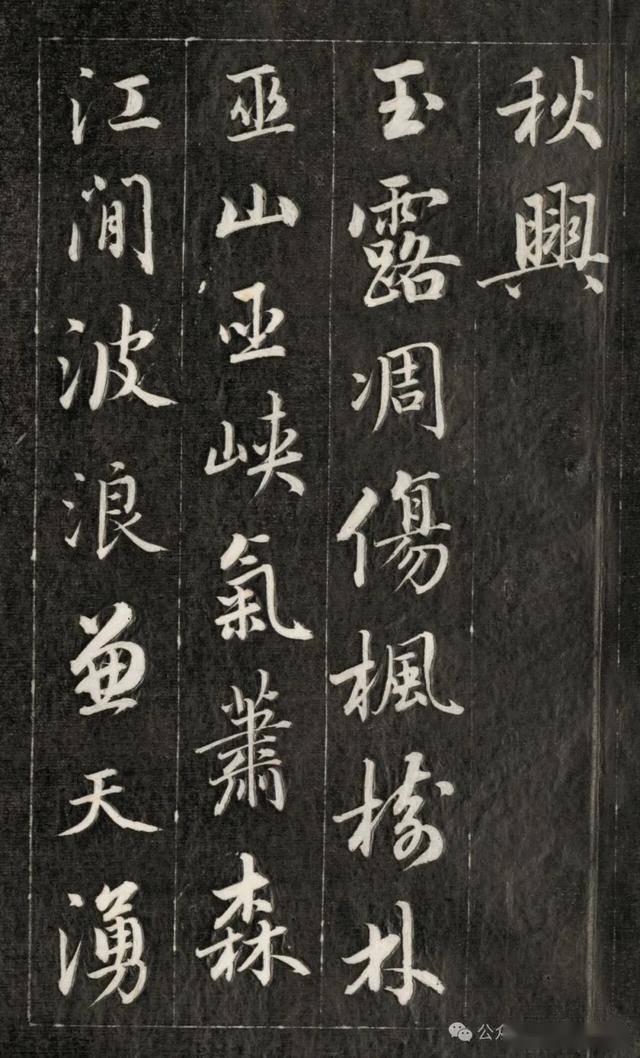 秋興
玉露凋傷楓樹林
巫山巫峽氣蕭森
江間波浪兼天湧
公众